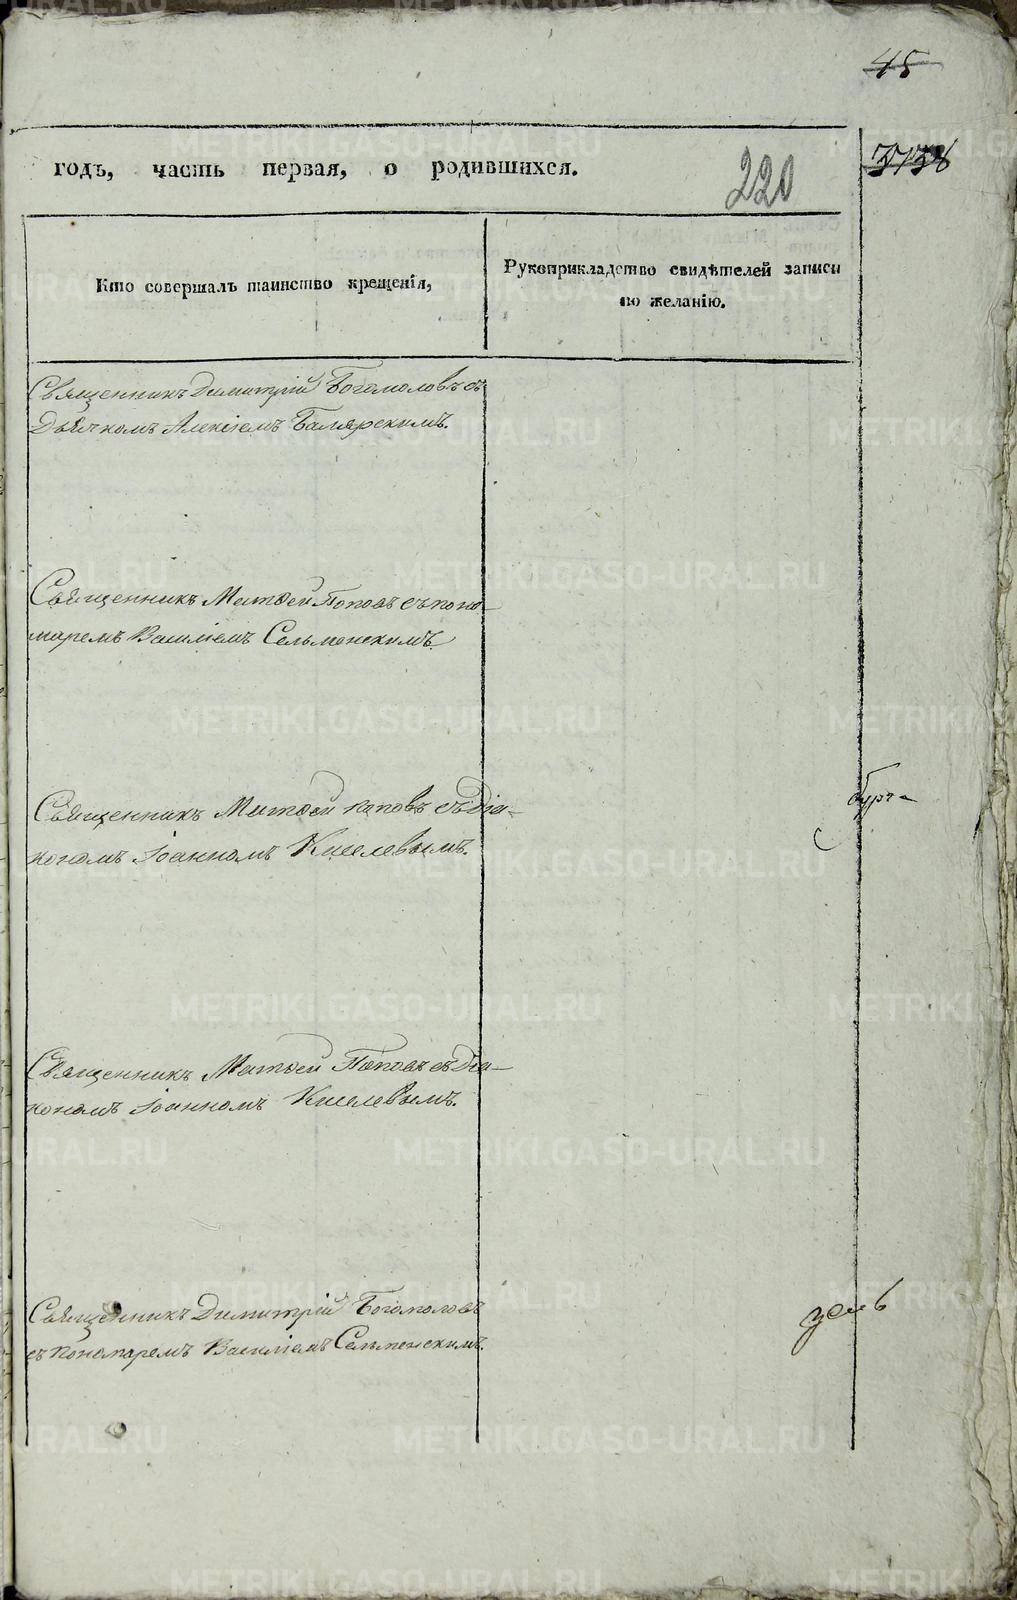 45
годъ, часть первая, о родившихся.
220
Кто совершалъ таинство крещенія,
Рукоприкладство свидѣтелей записи
по желанію.
Священникъ Димитрій Богомоловъ съ
Дьячкомъ Алексіемъ Балярскимъ.
Священникъ Матѳей Поповъ съ поно-
маремъ Василіемъ Сельменскимъ.
Священникъ Матѳей поповъ съ Діа-
кономъ Іоанномъ Киселевымъ.
Священникъ Матѳей Поповъ съ Діа-
кономъ Іоанномъ Киселевымъ.
Священникъ Димитрій Богомоловъ
съ Пономаремъ Василіемъ Сельменскимъ.
METRIKI.GASO-URAL.RU